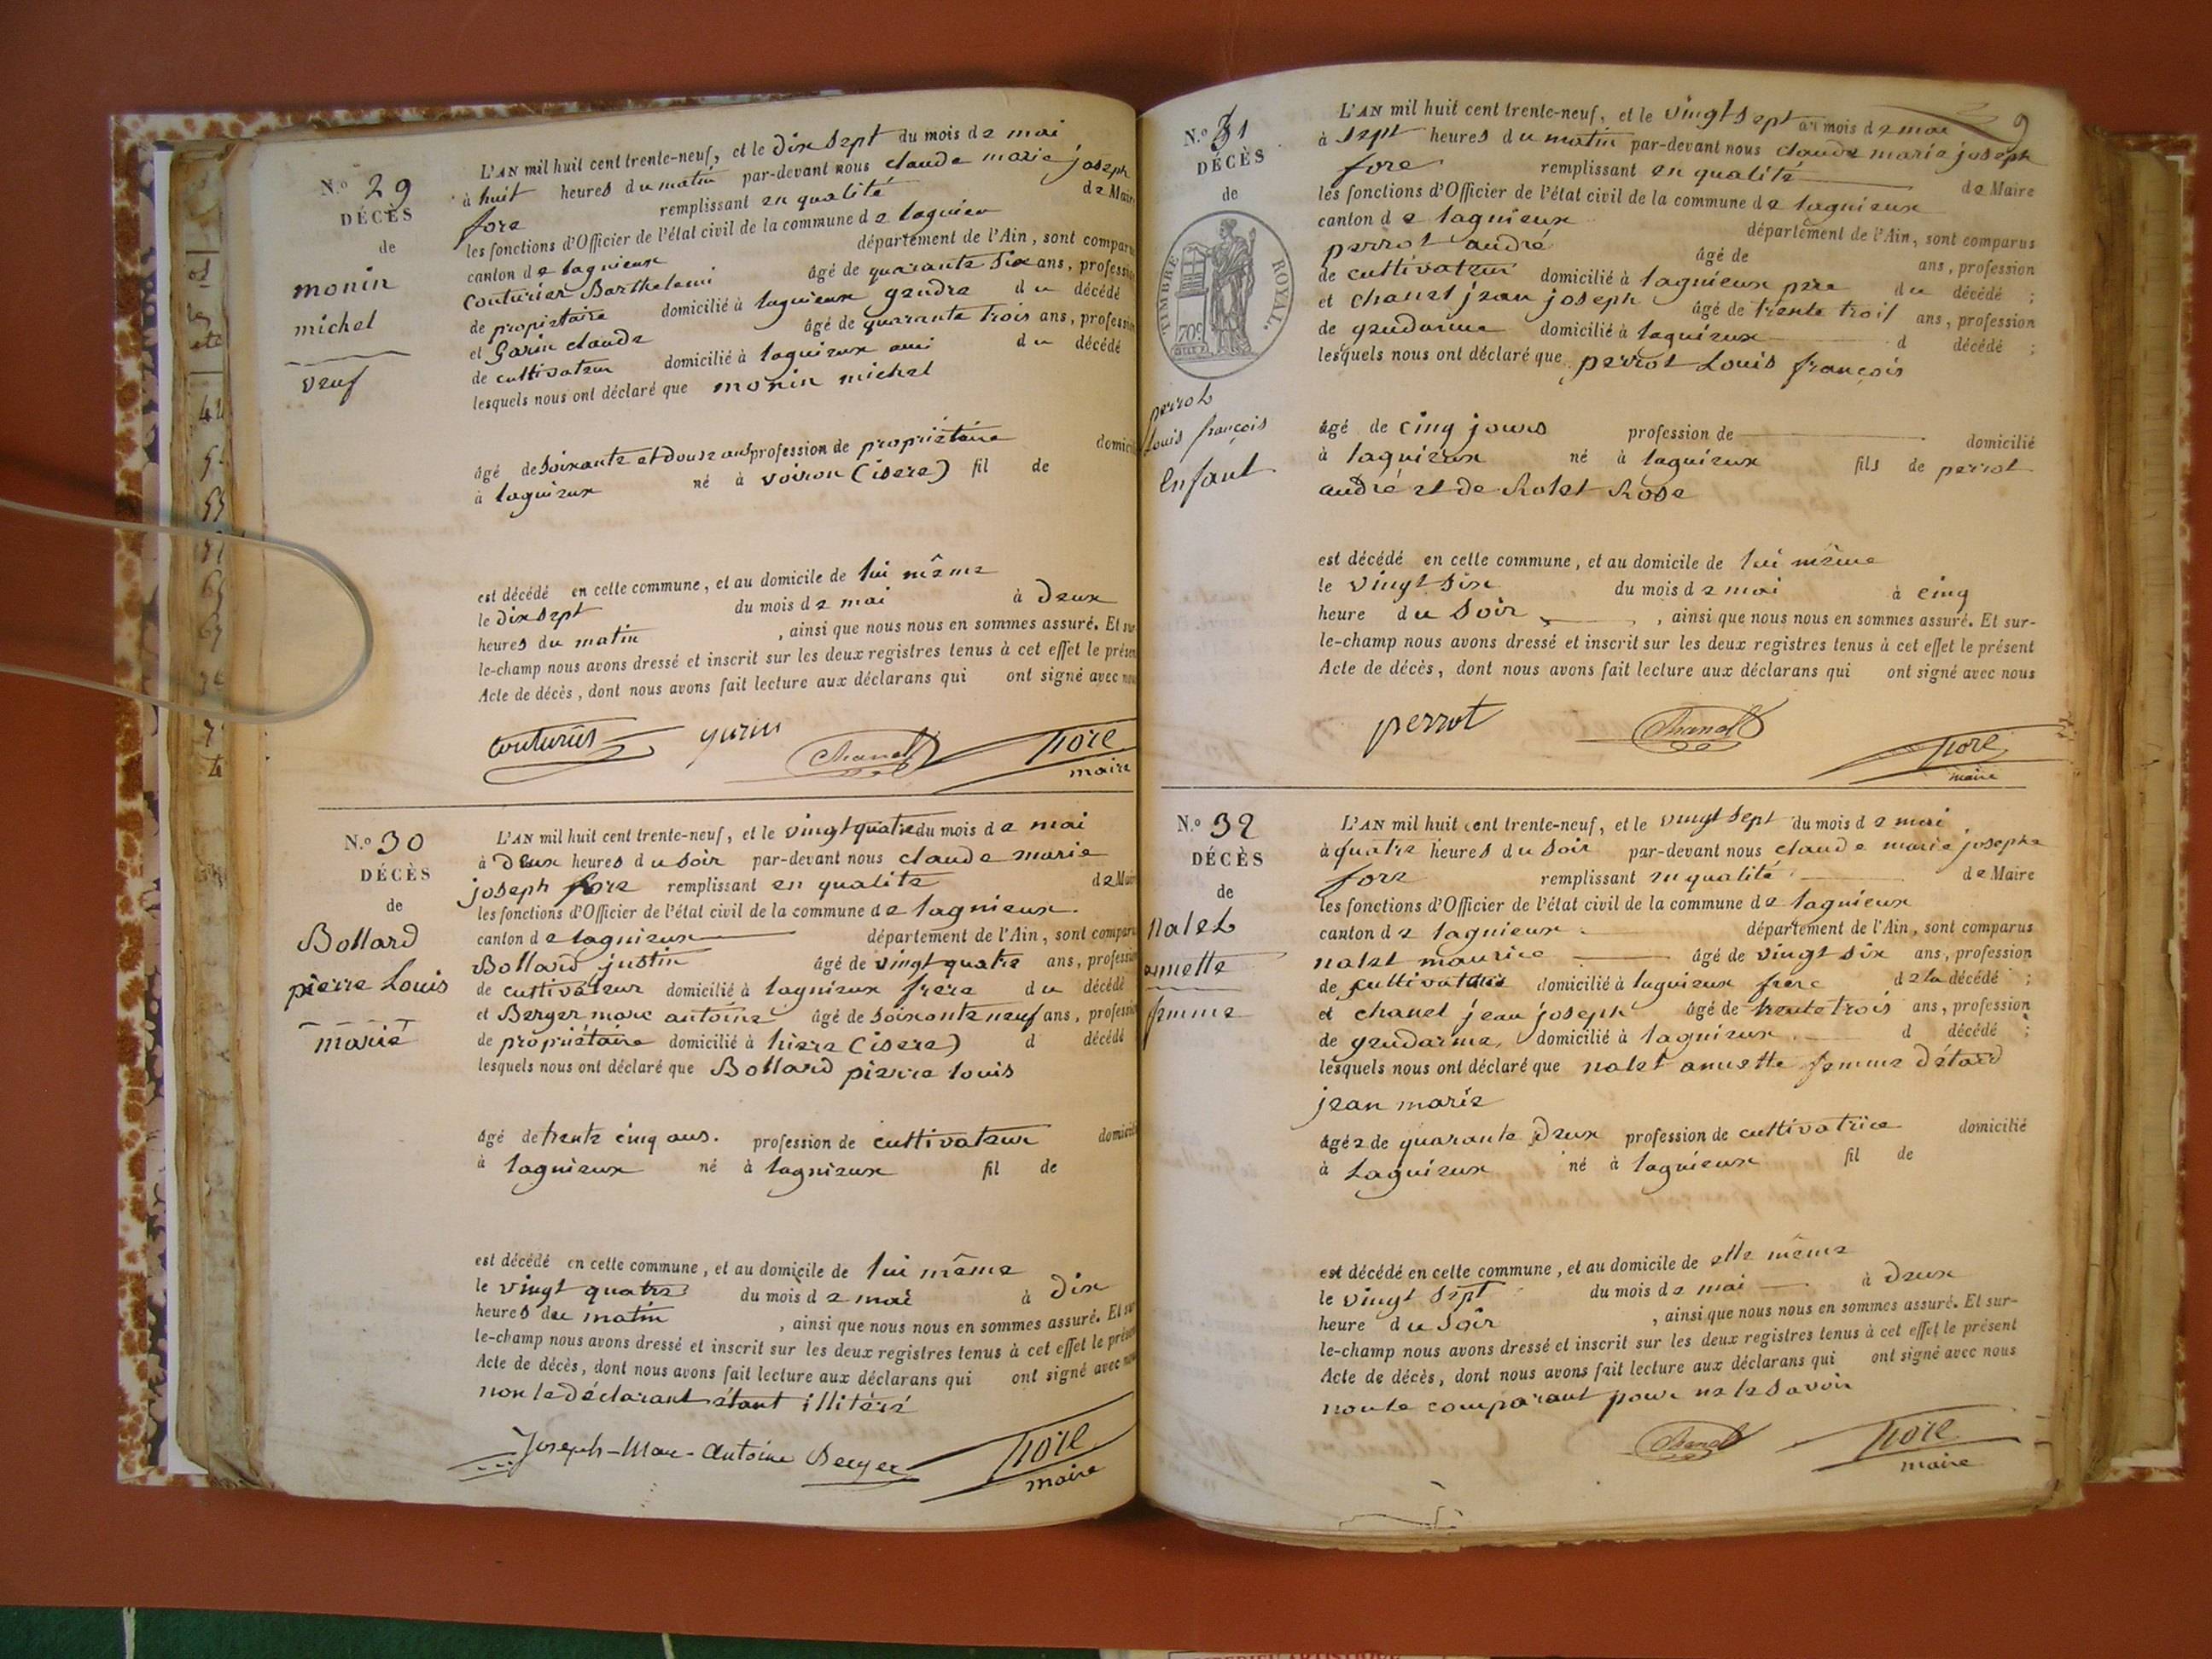 N.º 29
DÉCÈS
de
monin
michel
veuf
L'AN mil huit cent trente-neuf, et le dix sept du mois de mai
à huit heures du matin par-devant nous claude marie joseph
fore remplissant en qualité de Maire
les fonctions d'Officier de l'état civil de la commune de lagnieu
canton de lagnieux département de l'Ain, sont comparus
couturier Barthelemi âgé de quarante six ans, profession
de propietaire domicilié à lagnieux gendre du décédé
et Garin claude âgé de quarante trois ans, profession
de cultivateur domicilié à lagnieux ami du décédé
lesquels nous ont déclaré que monin michel
âgé de soixante et douze ans profession de propriétaire domicilié
à lagnieux né à voiron (isere) fil de
est décédé en cette commune, et au domicile de lui même
le dix sept du mois de mai à deux
heures du matin , ainsi que nous nous en sommes assuré. Et sur
le-champ nous avons dressé et inscrit sur les deux registres tenus à cet effet le présent
Acte de décès, dont nous avons fait lecture aux déclarans qui ont signé avec nous
couturier garin Chanel fore
maire
N.º 30
DÉCÈS
de
Bollard
pierre Louis
marié
L'AN mil huit cent trente-neuf, et le vingt quatre du mois de mai
à deux heures du soir par-devant nous claude marie
joseph fore remplissant en qualité de Maire
les fonctions d'Officier de l'état civil de la commune de lagnieux.
canton de lagnieux département de l'Ain, sont comparus
Bollard justin âgé de vingt quatre ans, profession
de cultivateur domicilié à lagnieux frere du décédé
et Berger marc antoine âgé de soixante neuf ans, profession
de propriétaire domicilié à hiere (isere) d décédé
lesquels nous ont déclaré que Bollard pierre louis
âgé de trente cinq ans. profession de cultivateur domicilié
à lagnieux né à lagnieux fil de
est décédé en cette commune, et au domicile de lui même
le vingt quatre du mois de mai à dix
heures du matin , ainsi que nous nous en sommes assuré. Et sur
le-champ nous avons dressé et inscrit sur les deux registres tenus à cet effet le présent
Acte de décès, dont nous avons fait lecture aux déclarans qui ont signé avec nous
non le déclarant étant illitéré
Joseph-Marc-Antoine Berger fore
maire
9
N.º 31
DÉCÈS
de
TIMBRE ROYAL.
70 c.
perrot
louis françois
enfant
L'AN mil huit cent trente-neuf, et le vingt sept du mois de mai
à sept heures du matin par-devant nous claude marie joseph
fore remplissant en qualité de Maire
les fonctions d'Officier de l'état civil de la commune de lagnieux
canton de lagnieux département de l'Ain, sont comparus
perrot andré âgé de ans, profession
de cultivateur domicilié à lagnieux pere du décédé ;
et chanel jean joseph âgé de trente trois ans, profession
de gendarme domicilié à lagnieux d décédé ;
lesquels nous ont déclaré que perrot Louis françois
âgé de cinq jours profession de domicilié
à lagnieux né à lagnieux fils de perrot
andré et de Rolet Rose
est décédé en cette commune, et au domicile de lui même
le vingt six du mois de mai à cinq
heure du soir , ainsi que nous nous en sommes assuré. Et sur-
le-champ nous avons dressé et inscrit sur les deux registres tenus à cet effet le présent
Acte de décès, dont nous avons fait lecture aux déclarans qui ont signé avec nous
perrot Chanel fore
maire
N.º 32
DÉCÈS
de
nalet
annette
femme
L'AN mil huit cent trente-neuf, et le vingt sept du mois de mai
à quatre heures du soir par-devant nous claude marie josephe
fore remplissant en qualité de Maire
les fonctions d'Officier de l'état civil de la commune de lagnieux
canton de lagnieux département de l'Ain, sont comparus
nalet maurice âgé de vingt six ans, profession
de cultivateur domicilié à lagnieux frere de la décédé ;
et chanel jean joseph âgé de trente trois ans, profession
de gendarme domicilié à lagnieux d décédé ;
lesquels nous ont déclaré que nalet annette femme détard
jean marie
âgée de quarante deux profession de cultivatrice domicilié
à Lagnieux né à lagnieux fil de
est décédé en cette commune, et au domicile de elle même
le vingt sept du mois de mai à deux
heure du soir , ainsi que nous nous en sommes assuré. Et sur-
le-champ nous avons dressé et inscrit sur les deux registres tenus à cet effet le présent
Acte de décès, dont nous avons fait lecture aux déclarans qui ont signé avec nous
non le comparant pour ne le savoir
Chanel fore
maire